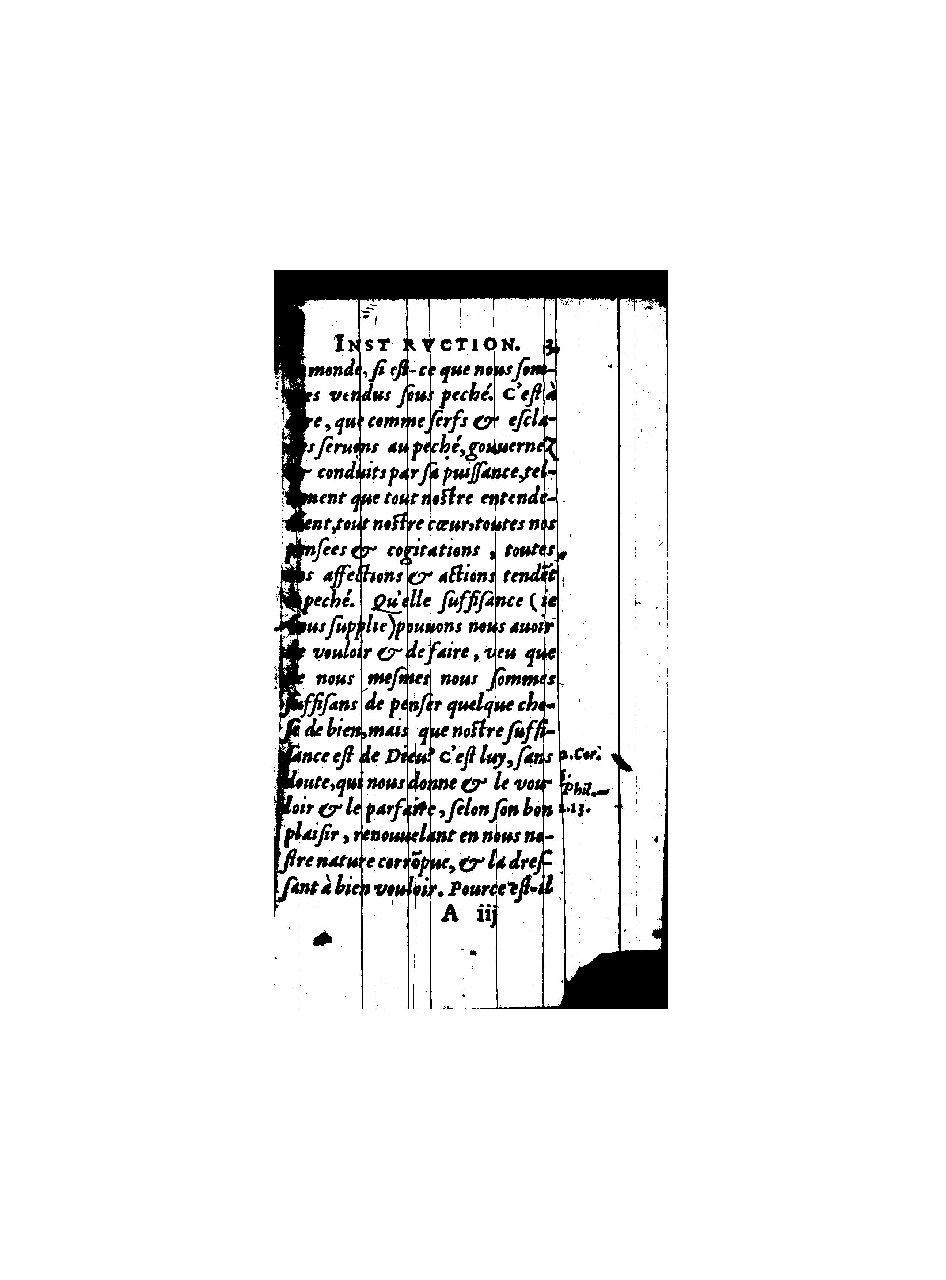 INSTRVCTION. 3
monde, ſi eſt-ce que nous ſom-
vendus ſous peché. C'eſt à
que comme ſerfs & eſcla-
ſeruons au peché, gouuernez
& conduits par ſa puiſſance, tel-
lement que tout noſtre entende-
ment, tout noſtre cœur, toutes nos
penſees & cogitations, toutes
nos affections & actions tendēt
peché. Qu'elle ſuffiſance (ie
vous ſupplie) pouuons nous auoir
de vouloir & de faire, veu que
de nous meſmes nous ſommes
ſuffiſans de penſer quelque cho-
ſe de bien, mais que noſtre ſuffi-
ſance eſt de Dieu? C'eſt luy, ſans
doute, qui nous donne & le vou-
loir & le parfaire, ſelon ſon bon
plaiſir, renouuelant en nous no-
ſtre nature corrōpue, & la dreſ-
ſant à bien vouloir. Pource eſt-il
A iij
2. Cor.
Phil.
2.13.